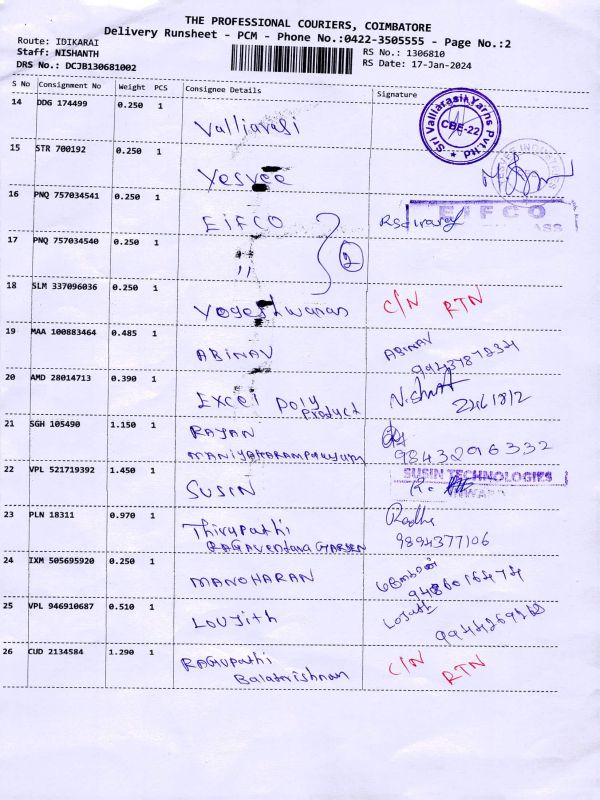 THE PROFESSIONAL COURIERS, COIMBATORE
Delivery Runsheet - PCM - Phone No.:0422-3505555 - Page No.:2
Route: IDIKARAI
Staff: NISHANTH
DRS No.: DCJB130681002
RS No.: 1306810
RS Date: 17-Jan-2024
S No Consignment No Weight PCS Consignee Details Signature
14 DDG 174499 0.250 1 Valliarasi
Sri Valliarasi Yarns Pvt.Ltd CBE-22
15 STR 700192 0.250 1 Yesvee
16 PNQ 757034541 0.250 1 EIFCO EIFCO
17 PNQ 757034540 0.250 1 " 2
18 SLM 337096036 0.250 1 Yogeshwaran C/N RTN
19 MAA 100883464 0.485 1 ABINAV ABINAV
20 AMD 28014713 0.390 1 Excel Poly
Product
21 SGH 105490 1.150 1 RAJAN
9843296332
22 VPL 521719392 1.450 1 SUSIN SUSIN TECHNOLOGIES
23 PLN 18311 0.970 1 Thirupathi Radha
9894377106
24 IXM 505695920 0.250 1 MANOHARAN
25 VPL 946910687 0.510 1 Loujith
26 CUD 2134584 1.290 1 RAGUPathi C/N RTN
Balakrishnan